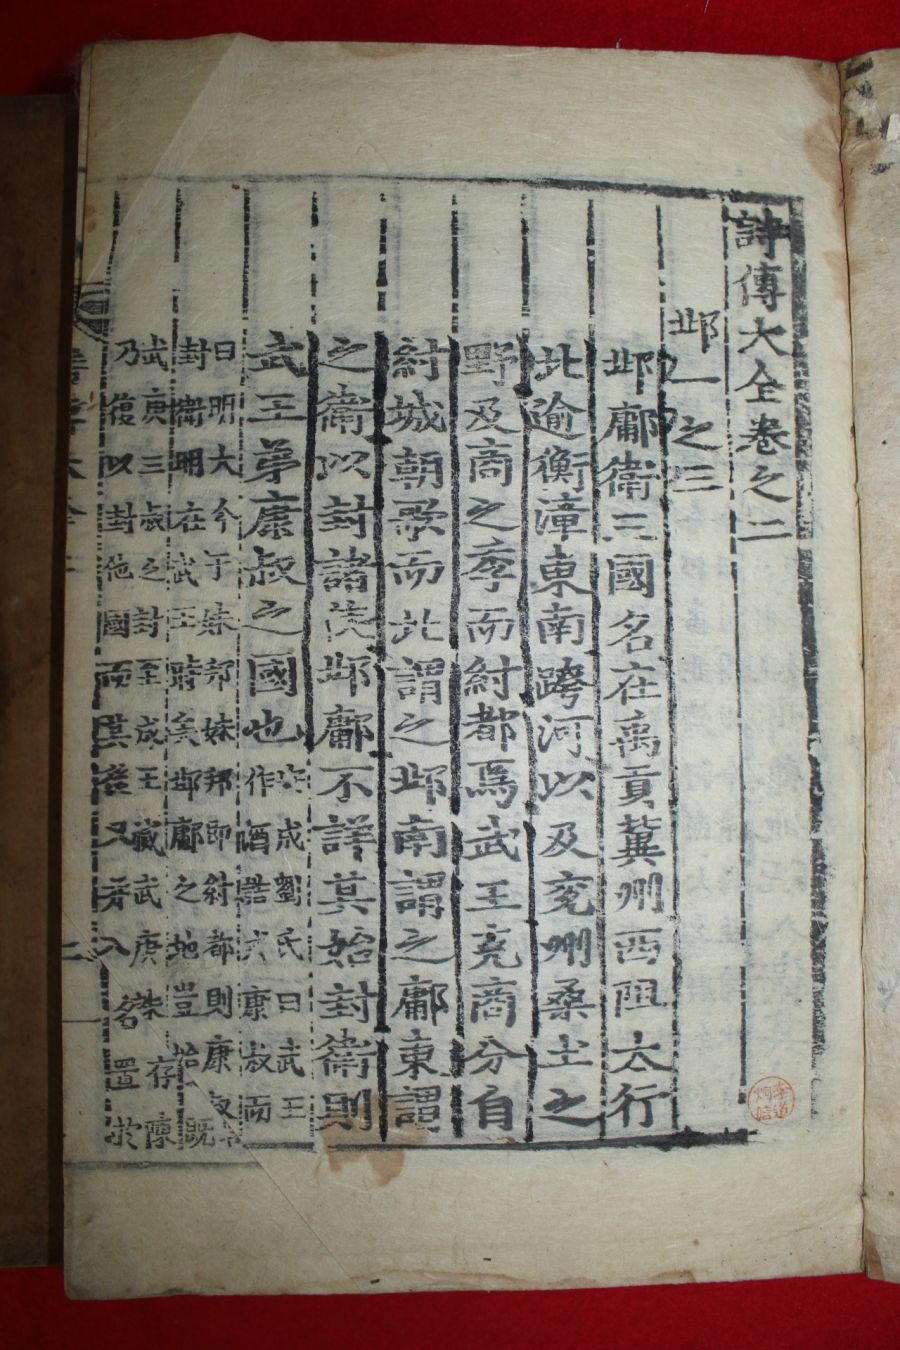 詩傳大全卷之二
邶一之三
邶鄘衛三國名在禹貢冀州西阻太行
北逾衡漳東南跨河以及兗州桑土之
野及商之季而紂都焉武王克商分自
紂城朝歌而北謂之邶南謂之鄘東謂
之衛以封諸侯邶鄘不詳其始封衛則
武王弟康叔之國也
安成劉氏曰武王
作酒誥戒康叔而
曰明大令于妹邦妹邦即紂都則康叔
封衛明在武王時矣邶鄘之地豈始
武庚三叔之封至成王滅武庚
乃復以封他國而其後又并入